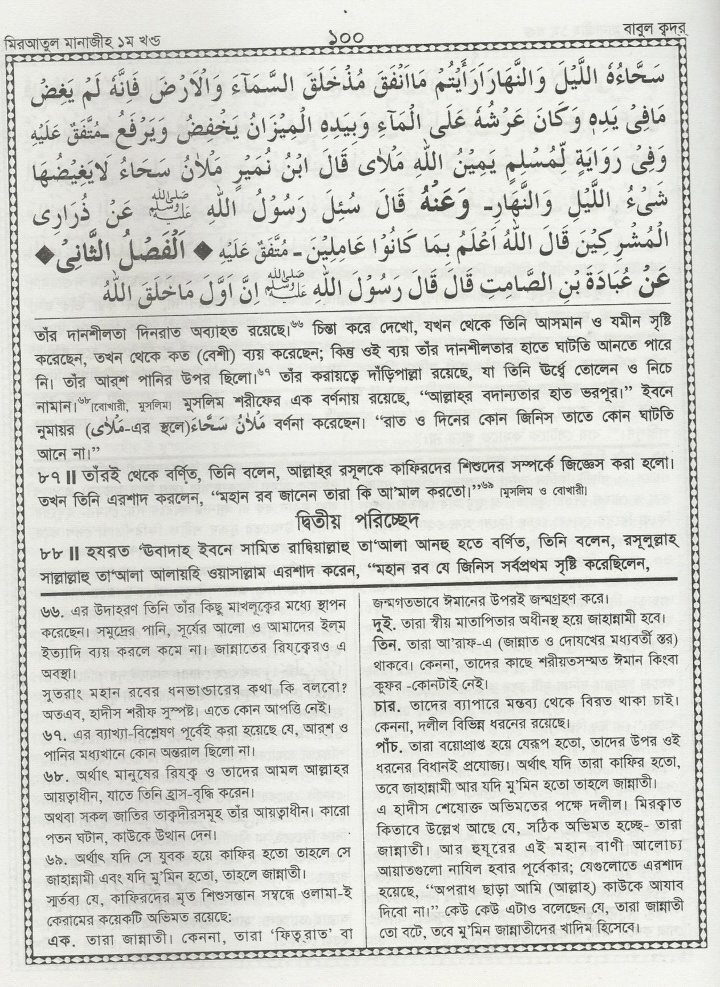 মিরআতুল মানাজীহ ১ম খণ্ড
১০০
বাবুল ক্বদর
سَحَّاءُهُ اللَّيْلَ وَالنَّهَارَ اَرَاَيْتُمْ مَا اَنْفَقَ مُذْخَلَقَ السَّمَآءَ وَالْاَرْضَ فَاِنَّهُ لَمْ يَغِضْ
مَافِىْ يَدِهٖ وَكَانَ عَرْشُهُ عَلَى الْمَآءِ وَبِيَدِهِ الْمِيْزَانُ يَخْفِضُ وَيَرْفَعُ ـ مُتَّفَقٌ عَلَيْهِ
وَفِىْ رَوَايَةٍ لِّمُسْلِمٍ يَمِيْنُ اللّٰهِ مَلْاٰى قَالَ ابْنُ نُمَيْرٍ مَلْاٰنُ سَحَاءُ لَايَغِيْضُهَا
شَىْءُ اللَّيْلِ وَالنَّهَارِ ـ وَعَنْهُ قَالَ سُئِلَ رَسُوْلُ اللّٰهِ ﷺ عَنْ ذُرَارِى
الْمُشْرِكِيْنَ قَالَ اللّٰهُ اَعْلَمُ بِمَا كَانُوْا عَامِلِيْنَ ـ مُتَّفَقٌ عَلَيْهِ ◆ اَلْفَصْلُ الثَّانِىْ ◆
عَنْ عُبَادَةَ بْنِ الصَّامِتِ قَالَ قَالَ رَسُوْلُ اللّٰهِ ﷺ اِنَّ اَوَّلَ مَاخَلَقَ اللّٰهُ
তাঁর দানশীলতা দিনরাত অব্যাহত রয়েছে।৬৬ চিন্তা করে দেখো, যখন থেকে তিনি আসমান ও যমীন সৃষ্টি
করেছেন, তখন থেকে কত (বেশী) ব্যয় করেছেন; কিন্তু ওই ব্যয় তাঁর দানশীলতার হাতে ঘাটতি আনতে পারে
নি। তাঁর আর্‌শ পানির উপর ছিলো।৬৭ তাঁর করায়ত্বে দাঁড়িপাল্লা রয়েছে, যা তিনি ঊর্ধ্বে তোলেন ও নিচে
নামান।৬৮ [বোখারী, মুসলিম] মুসলিম শরীফের এক বর্ণনায় রয়েছে, “আল্লাহ্‌র বদান্যতার হাত ভরপুর।” ইবনে
নুমায়র (مَلْاٰى-এর স্থলে) مَلْاٰنُ سَحَّاءُ বর্ণনা করেছেন। “রাত ও দিনের কোন জিনিস তাতে কোন ঘাটতি
আনে না।”
৮৭ ॥ তাঁরই থেকে বর্ণিত, তিনি বলেন, আল্লাহ্‌র রসূলকে কাফিরদের শিশুদের সম্পর্কে জিজ্ঞেস করা হলো।
তখন তিনি এরশাদ করলেন, “মহান রব জানেন তারা কি আ'মাল করতো।”৬৯ [মুসলিম ও বোখারী]
দ্বিতীয় পরিচ্ছেদ
৮৮ ॥ হযরত 'ঊবাদাহ ইবনে সামিত রাদ্বিয়াল্লাহু তা'আলা আনহু হতে বর্ণিত, তিনি বলেন, রসূলুল্লাহ
সাল্লাল্লাহু তা'আলা আলায়হি ওয়াসাল্লাম এরশাদ করেন, “মহান রব যে জিনিস সর্বপ্রথম সৃষ্টি করেছিলেন,
৬৬. এর উদাহরণ তিনি তাঁর কিছু মাখলূক্বের মধ্যে স্থাপন
করেছেন। সমুদ্রের পানি, সূর্যের আলো ও আমাদের ইল্‌ম
ইত্যাদি ব্যয় করলে কমে না। জান্নাতের রিয্‌ক্বেরও এ
অবস্থা।
সুতরাং মহান রবের ধনভাণ্ডারের কথা কি বলবো?
অতএব, হাদীস শরীফ সুস্পষ্ট। এতে কোন আপত্তি নেই।
৬৭. এর ব্যাখ্যা-বিশ্লেষণ পূর্বেই করা হয়েছে যে, আরশ ও
পানির মধ্যখানে কোন অন্তরাল ছিলো না।
৬৮. অর্থাৎ মানুষের রিয্‌ক্ব ও তাদের আমল আল্লাহর
আয়ত্বাধীন, যাতে তিনি হ্রাস-বৃদ্ধি করেন।
অথবা সকল জাতির তাক্বদীরসমূহ তাঁর আয়ত্বাধীন। কারো
পতন ঘটান, কাউকে উত্থান দেন।
৬৯. অর্থাৎ যদি সে যুবক হয়ে কাফির হতো তাহলে সে
জাহান্নামী এবং যদি মু'মিন হতো, তাহলে জান্নাতী।
স্মর্তব্য যে, কাফিরদের মৃত শিশুসন্তান সম্বন্ধে ওলামা-ই
কেরামের কয়েকটি অভিমত রয়েছে:
এক. তারা জান্নাতী। কেননা, তারা 'ফিত্বরাত' বা
জন্মগতভাবে ঈমানের উপরই জন্মগ্রহণ করে।
দুই. তারা স্বীয় মাতাপিতার অধীনস্থ হয়ে জাহান্নামী হবে।
তিন. তারা আ'রাফ-এ (জান্নাত ও দোযখের মধ্যবর্তী স্তর)
থাকবে। কেননা, তাদের কাছে শরীয়তসম্মত ঈমান কিংবা
কুফর -কোনটাই নেই।
চার. তাদের ব্যাপারে মন্তব্য থেকে বিরত থাকা চাই।
কেননা, দলীল বিভিন্ন ধরনের রয়েছে।
পাঁচ. তারা বয়োপ্রাপ্ত হয়ে যেরূপ হতো, তাদের উপর ওই
ধরনের বিধানই প্রযোজ্য। অর্থাৎ যদি তারা কাফির হতো,
তবে জাহান্নামী আর যদি মু'মিন হতো তাহলে জান্নাতী।
এ হাদীস শেষোক্ত অভিমতের পক্ষে দলীল। মিরক্বাত
কিতাবে উল্লেখ আছে যে, সঠিক অভিমত হচ্ছে- তারা
জান্নাতী। আর হুযূরের এই মহান বাণী আলোচ্য
আয়াতগুলো নাযিল হবার পূর্বেকার; যেগুলোতে এরশাদ
হয়েছে, “অপরাধ ছাড়া আমি (আল্লাহ) কাউকে আযাব
দিবো না।” কেউ কেউ এটাও বলেছেন যে, তারা জান্নাতী
তো বটে, তবে মু'মিন জান্নাতীদের খাদিম হিসেবে।